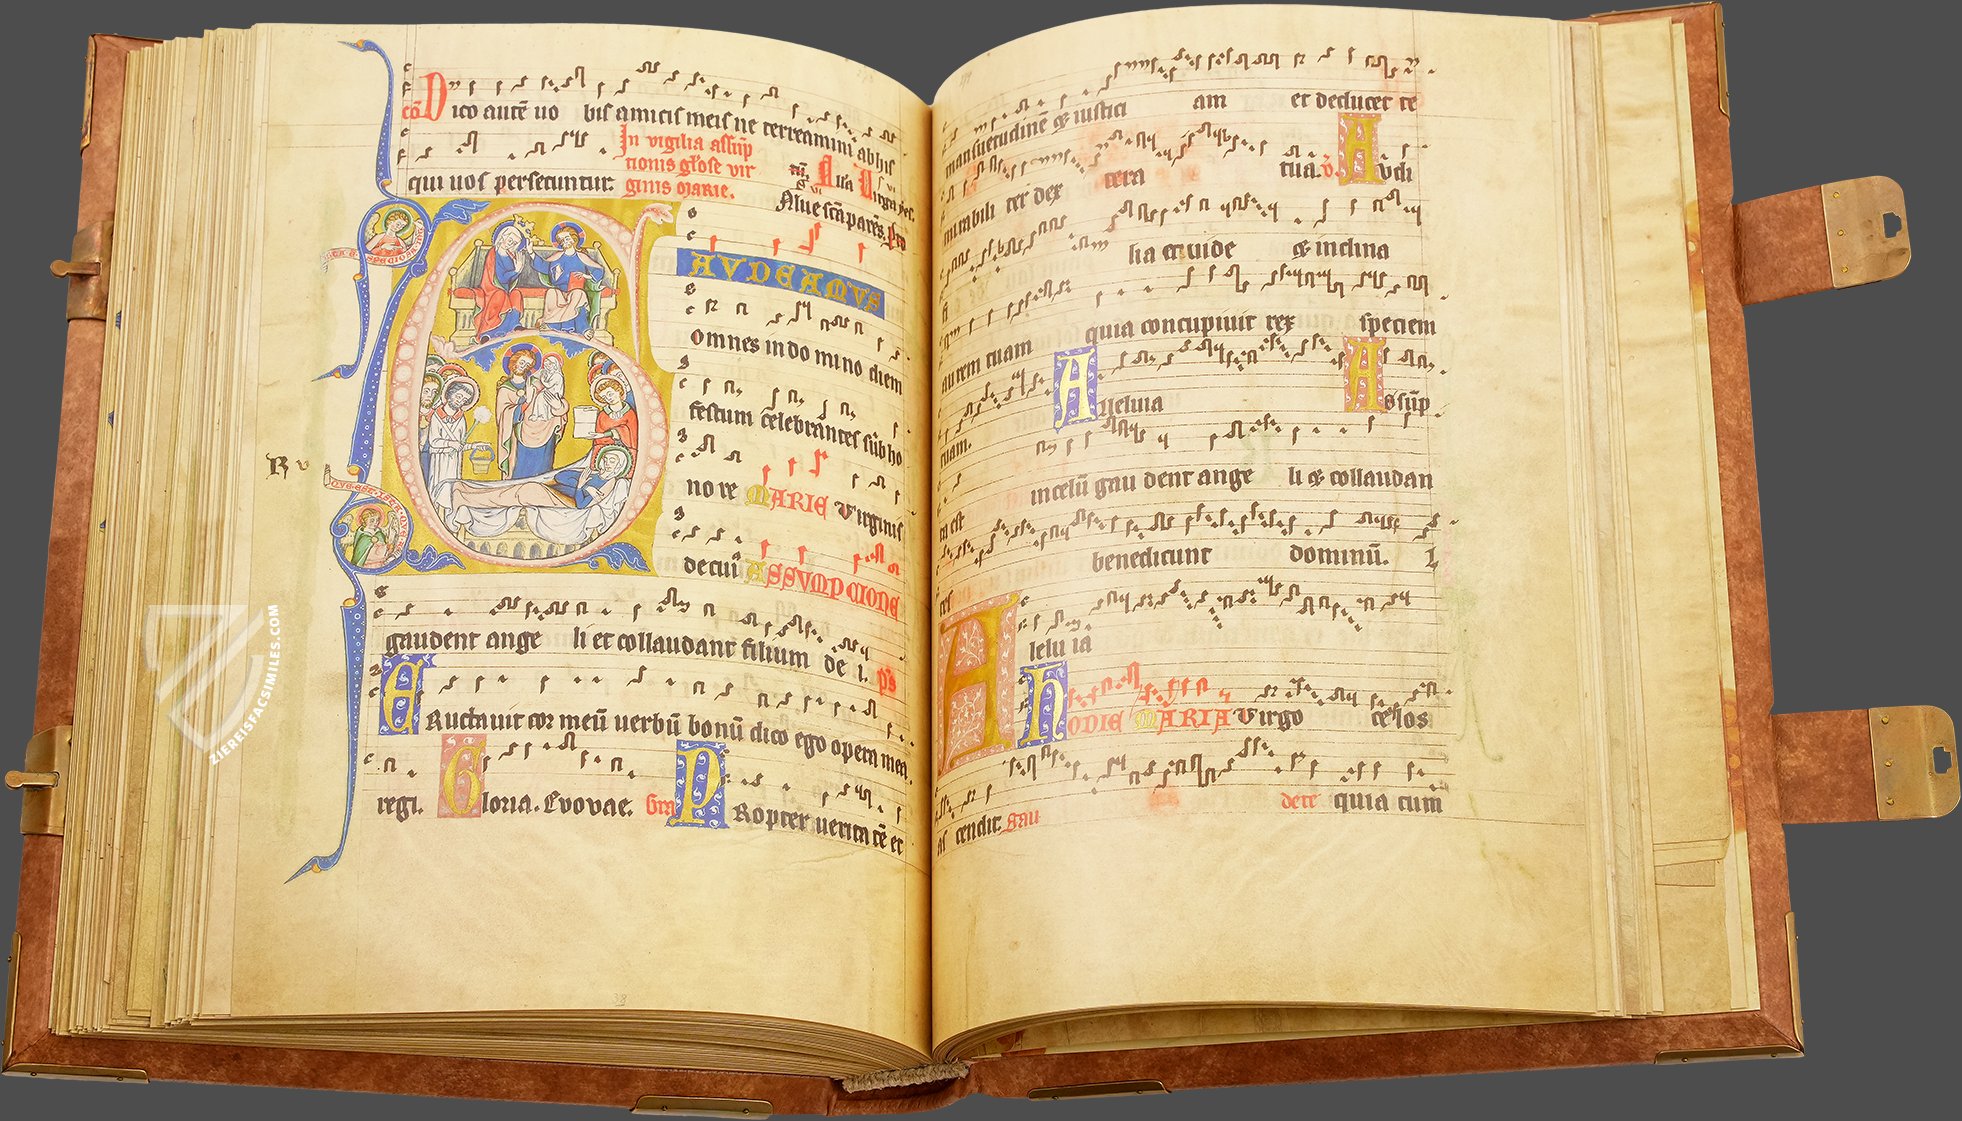 cō Dico autē uo bis amicis meis ne terreamini abhis
qui uos persecuntur. In vigilia assūp
tionis gl'ose vir
ginis marie.
Salue scā parēs.
GAVDEAMVS
omnes in do mi no diem
festum celebrantes sub ho
no re MARIE Virginis
de cuiꝰ ASSVMPCIONE
gaudent ange li et collaudant filium de i. ps
Eructauit cor meū uerbū bonū dico ego opera mea
regi. Gloria. Evovae. Gra Propter uerita tē et
Rv
38
mansuetudinē & iusticiam et deducet te
mirabili ter dextera tua. v. Audi
fi lia et uide & inclina
aurem tuam quia concupiuit rex speciem
tuam. Alleluia Assūp
ta est in celū gau dent ange li & collaudan
tes benedicunt dominū.
Alleluia
HODIE MARIA Virgo celos
as cendit. gau dete quia cum
ZIEREISFACSIMILES.COM